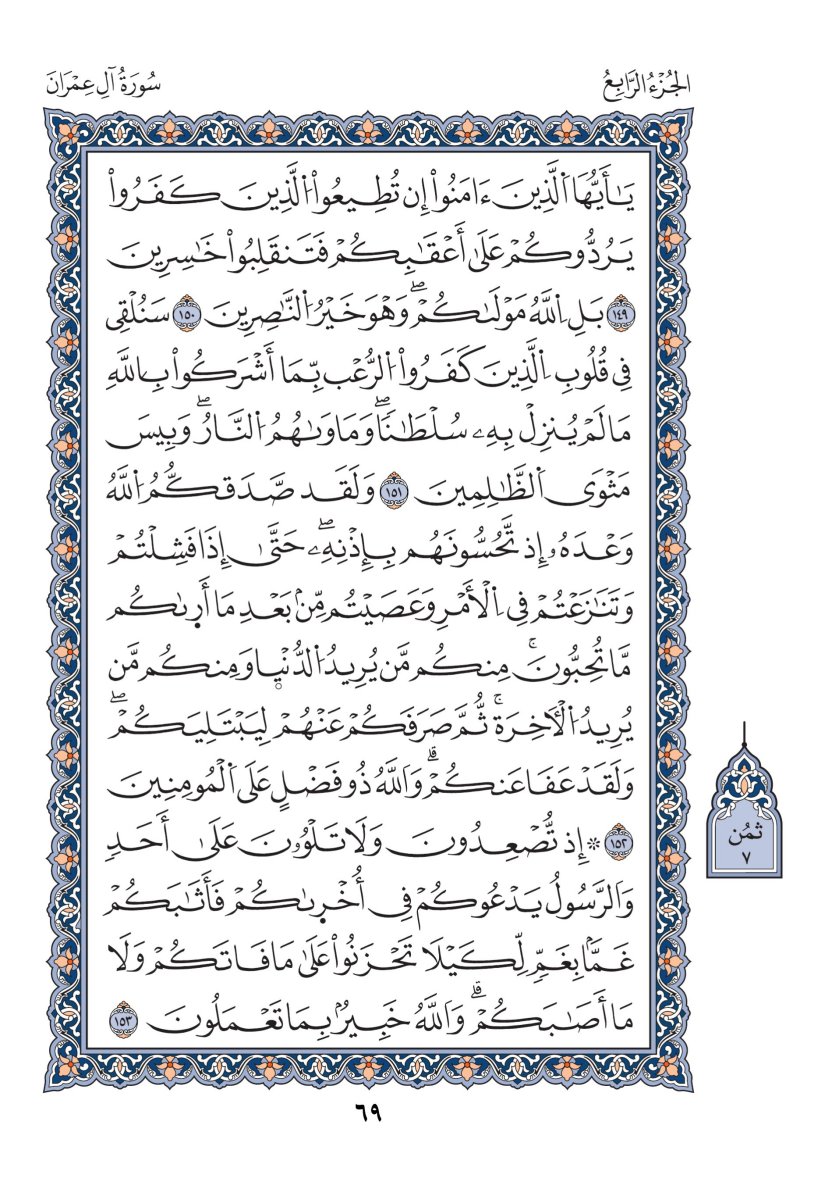 الجُزْءُ الرَّابِعُ
سُورَةُ آلِ عِمْرَانَ
يَٰأَيُّهَا اَ۬لَّذِينَ ءَامَنُواْ إِن تُطِيعُواْ اُ۬لَّذِينَ كَفَرُواْ
يَرُدُّوكُمْ عَلَىٰ أَعْقَٰبِكُمْ فَتَنقَلِبُواْ خَٰسِرِينَ
١٤٩ بَلِ اِ۬للَّهُ مَوْلَىٰكُمْۖ وَهْوَ خَيْرُ اُ۬لنَّٰصِرِينَ ١٥٠ سَنُلْقِي
فِي قُلُوبِ اِ۬لَّذِينَ كَفَرُواْ اُ۬لرُّعْب بِّمَا أَشْرَكُواْ بِاللَّهِ
مَا لَمْ يُنزِلْ بِهِۦ سُلْطَٰنٗاۖ وَمَاوَىٰهُمُ اُ۬لنَّارُۖ وَبِيسَ
مَثْوَى اَ۬لظَّٰلِمِينَ ١٥١ وَلَقَد صَّدَقكُّمُ اُ۬للَّهُ
وَعْدَهُۥ إِذ تَّحُسُّونَهُم بِإِذْنِهِۦۖ حَتَّىٰ إِذَا فَشِلْتُمْ
وَتَنَٰزَعْتُمْ فِي اِ۬لْأَمْرِ وَعَصَيْتُم مِّنۢ بَعْدِ مَا أَرِىٰكُم
مَّا تُحِبُّونَۚ مِنكُم مَّن يُرِيدُ اُ۬لدُّنْيا وَمِنكُم مَّن
يُرِيدُ اُ۬لْأٓخِرَةۚ ثُّمَّ صَرَفَكُمْ عَنْهُمْ لِيَبْتَلِيَكُمْۖ
وَلَقَدْ عَفَا عَنكُمْۗ وَاَللَّهُ ذُو فَضْلٍ عَلَى اَ۬لْمُومِنِينَ
١٥٢ ۞ إِذ تُّصْعِدُونَ وَلَا تَلْوُۥنَ عَلَىٰ أَحَدٖ
وَاَلرَّسُولُ يَدْعُوكُمْ فِي أُخْرِىٰكُمْ فَأَثَٰبَكُمْ
غَمَّۢا بِغَمّٖ لِّكَيْلَا تَحْزَنُواْ عَلَىٰ مَا فَاتَكُمْ وَلَا
مَا أَصَٰبَكُمْۗ وَاَللَّهُ خَبِيرُۢ بِمَا تَعْمَلُونَ ١٥٣
ثُمُن
٧
٦٩